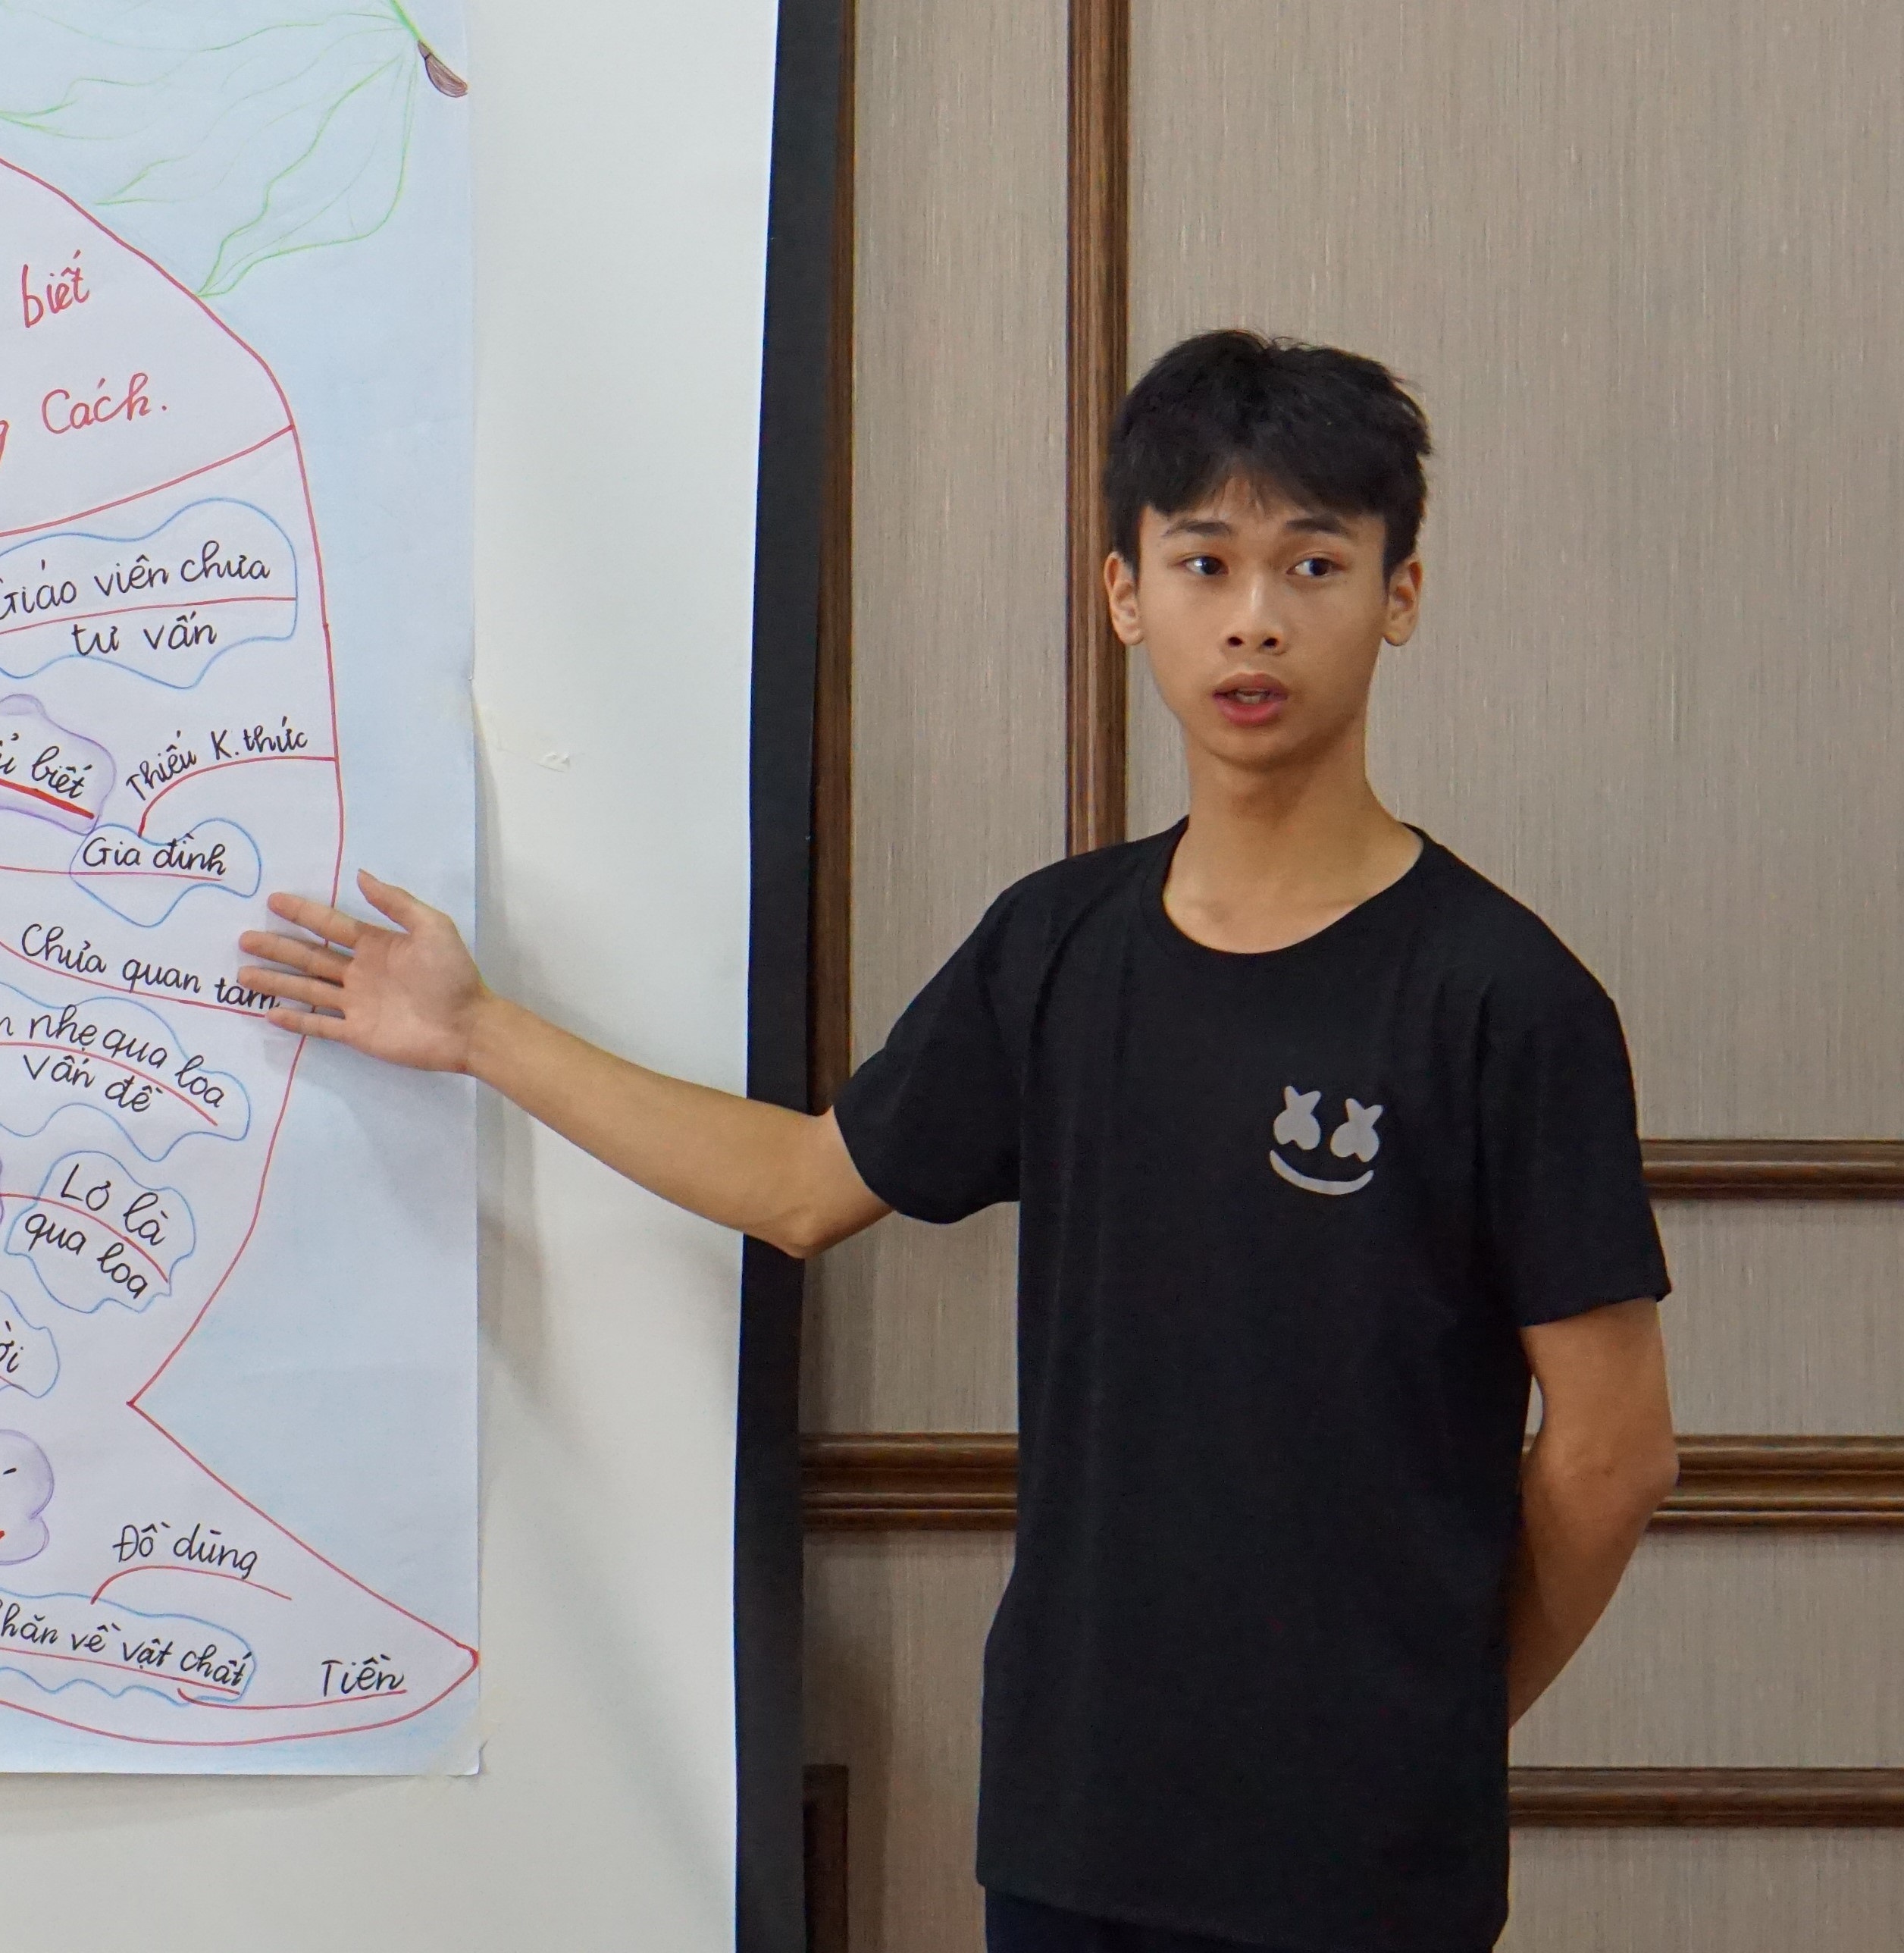 biết
Cách.
Giáo viên chưa
tư vấn
biết
Thiếu K.thức
Gia đình
Chưa quan tâm
nhẹ qua loa
vấn đề
Lơ là
qua loa
Đồ dùng
về vật chất
Tiền